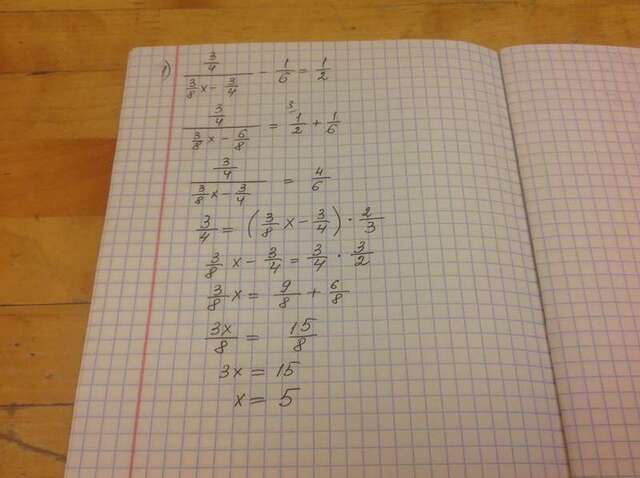 1) (3/4)/(3/8 x - 3/4) - 1/6 = 1/2
(3/4)/(3/8 x - 6/8) = 3 1/2 + 1/6
(3/4)/(3/8 x - 3/4) = 4/6
3/4 = (3/8 x - 3/4) · 2/3
3/8 x - 3/4 = 3/4 · 3/2
3/8 x = 9/8 + 6/8
3x/8 = 15/8
3x = 15
x = 5